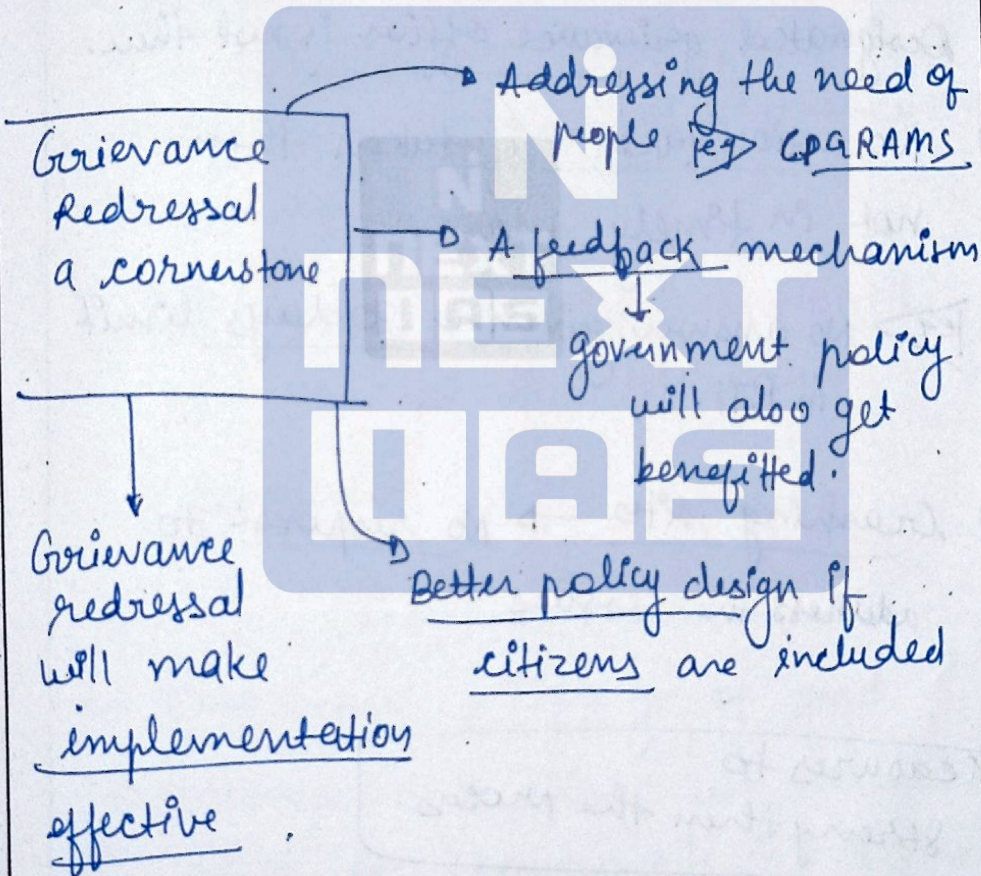 Grievance
Redressal
a cornerstone
Addressing the need of
people eg> CPGRAMS
A feedback mechanism
government policy
will also get
benefitted.
Better policy design if
citizens are included
Grievance
redressal
will make
implementation
effective.
N
NEXT
IAS